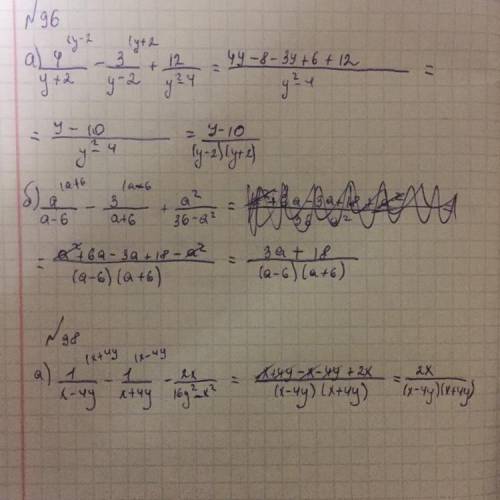 №96
а) 4^(y-2 / y+2 - 3^(y+2 / y-2 + 12 / y²-4 = 4y-8-3y+6+12 / y²-4 =
= y-10 / y²-4 = y-10 / (y-2)(y+2)
б) a^(a+6 / a-6 - 3^(a-6 / a+6 + a² / 36-a² =
= a²+6a-3a+18-a² / (a-6)(a+6) = 3a+18 / (a-6)(a+6)
№98
а) 1^(x+4y / x-4y - 1^(x-4y / x+4y - 2x / 16y²-x² = x+4y-x-4y+2x / (x-4y)(x+4y) = 2x / (x-4y)(x+4y)